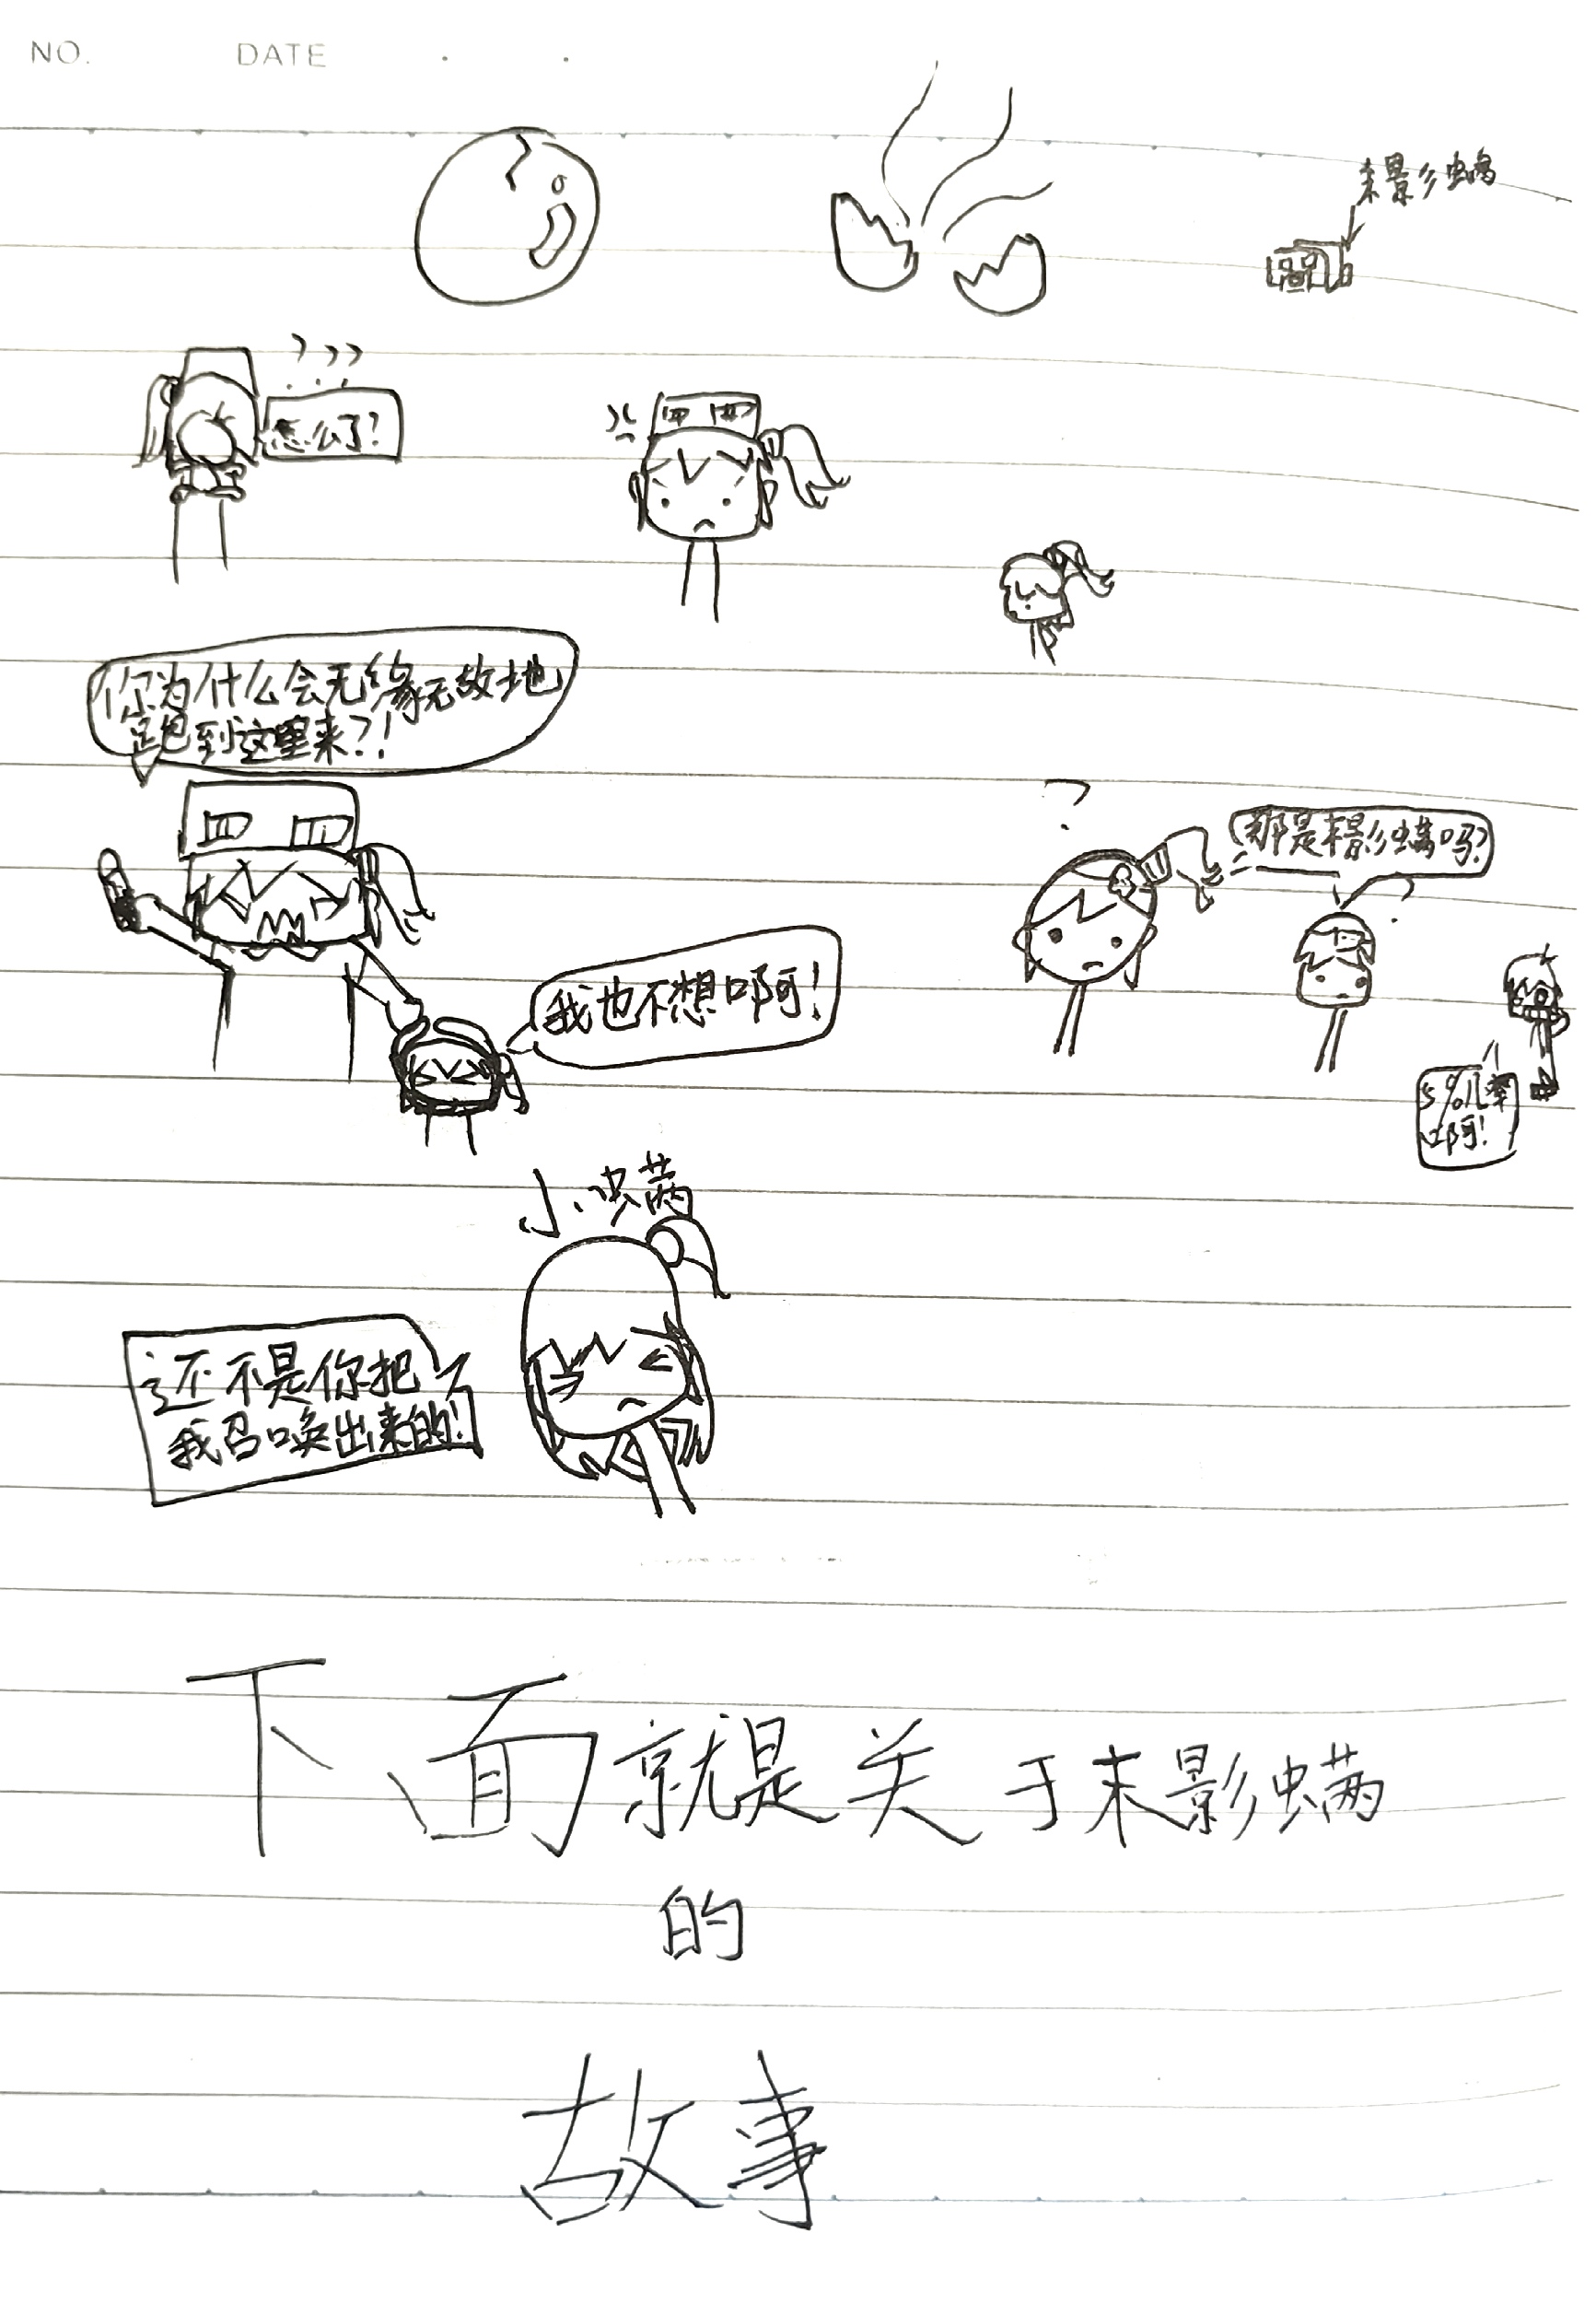 NO. DATE
末影螨
? ? ?
怎么了?
你为什么会无缘无故地
跑到这里来?!
?
那是末影螨吗?
?
我也不想啊!
5%几率
啊!
小螨
还不是你把
我召唤出来的!
下面就是关于末影螨
的
故事